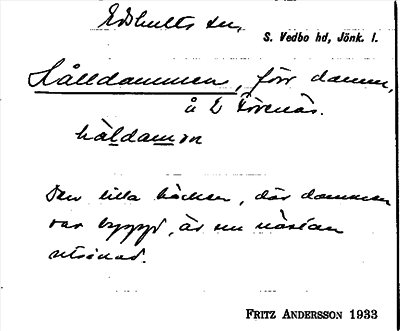 Edshults sn,
S. Vedbo hd, Jönk. l.
Hålldammen, förr damm,
å L Törenäs.
håldamən
Den lilla bäcken, där dammen
var byggd, är nu nästan
utsinad.
FRITZ ANDERSSON 1933